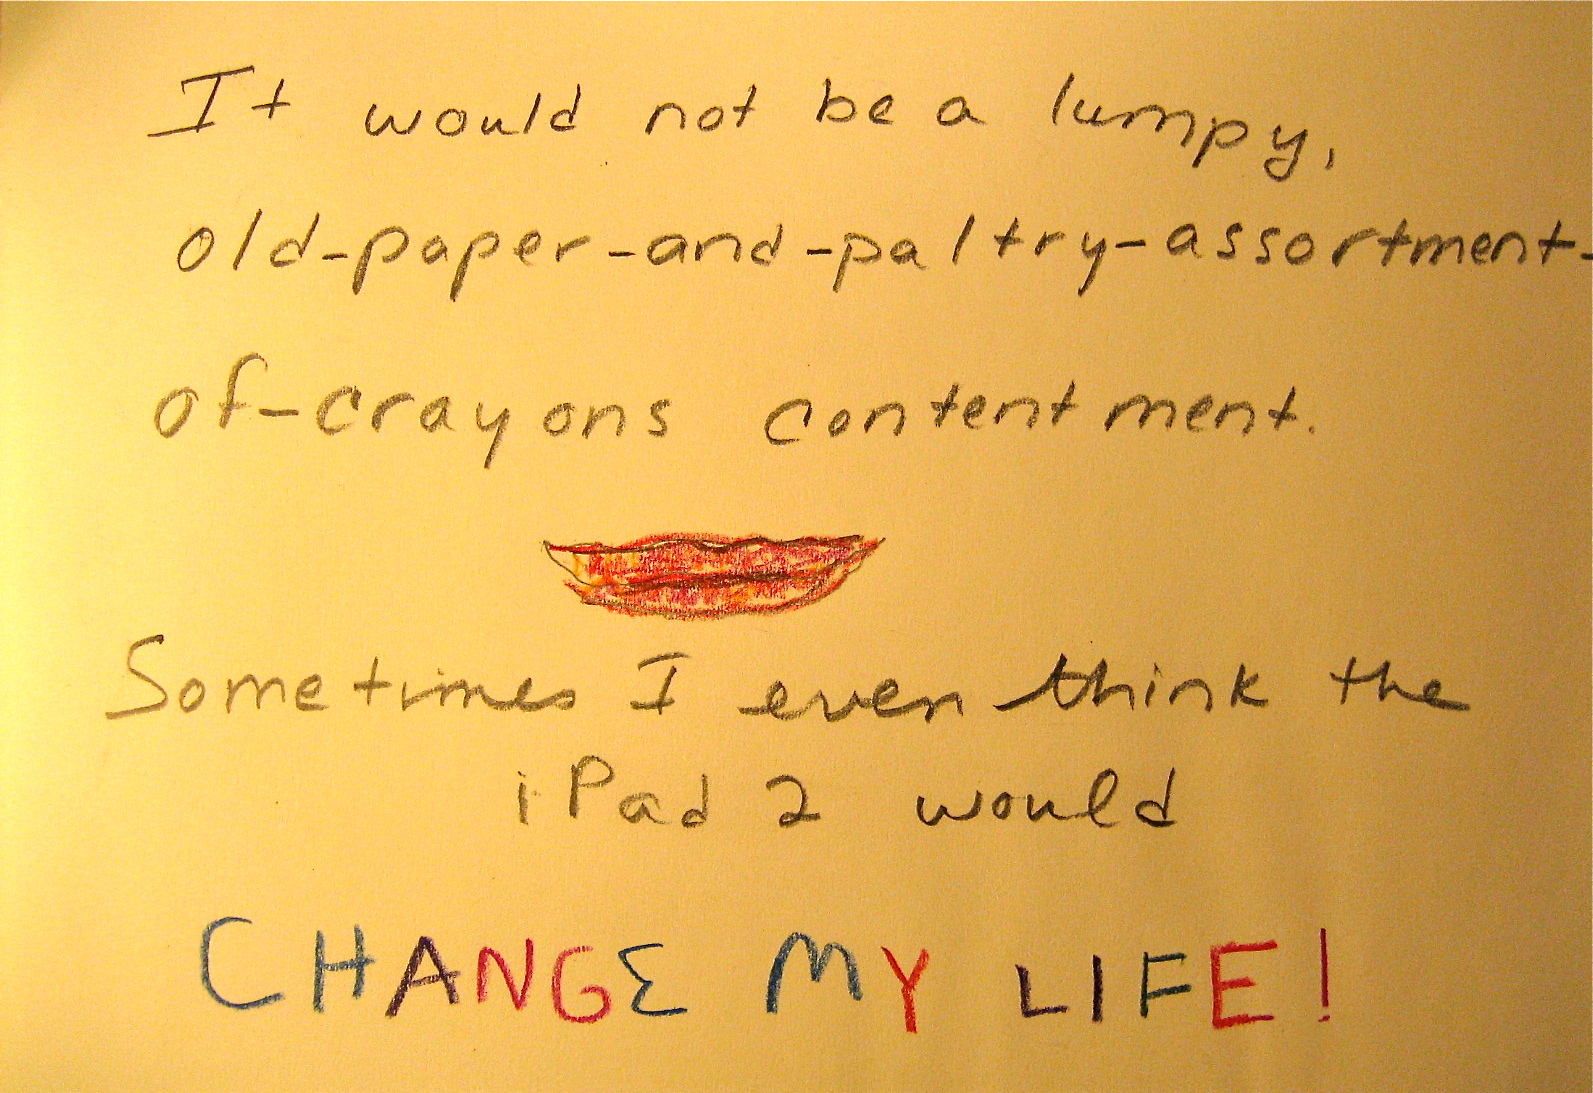 It would not be a lumpy,
old-paper-and-paltry-assortment-
of-crayons contentment.
Sometimes I even think the
iPad 2 would
CHANGE MY LIFE!